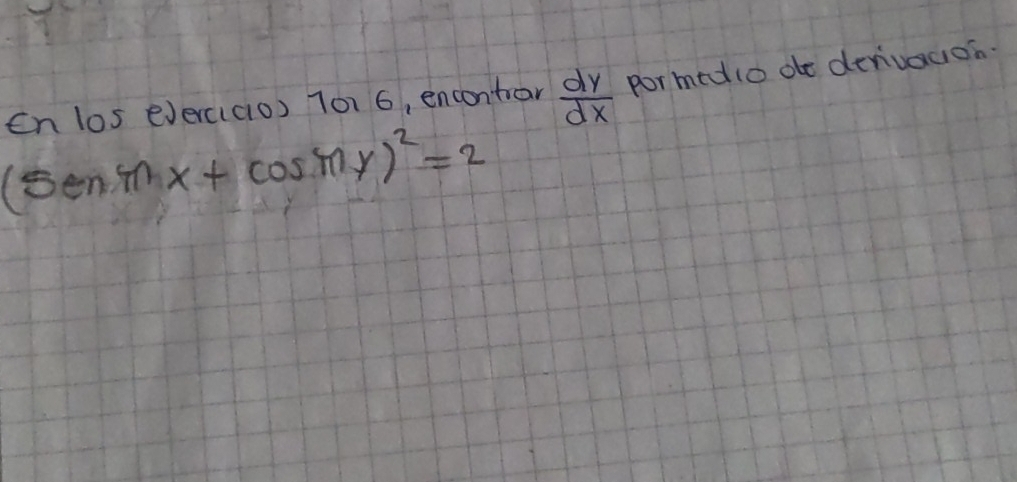 En los ejercicios 1 al 6, encontrar dy/dx por medio de derivación.
(Sen m x + cos m y)² = 2